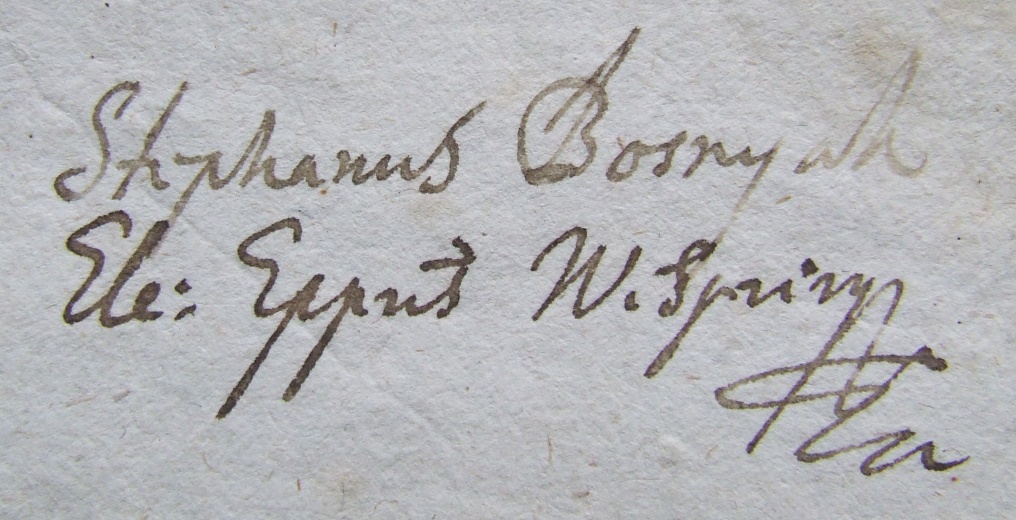 Stephanus Bosnyak
Ele: Eppus